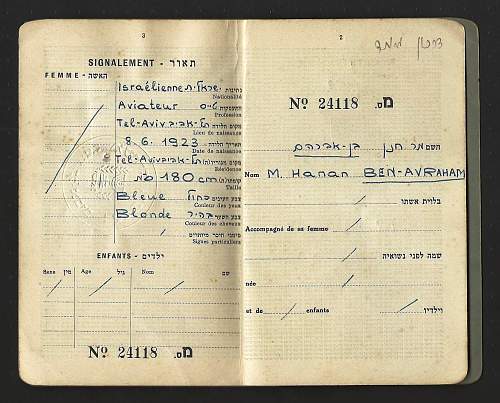 3
SIGNALEMENT - תאור
FEMME - האשה
Israélienne ישראלית נתינות
Nationalité
Aviateur טייס התעסקות
Profession
Tel-Aviv תל-אביב מקום הלידה
Lieu de naissance
8. 6. 1923 תאריך הלידה
Date de naissance
Tel-Aviv תל-אביב מקום המגורים
Résidence
180 cm
Taille
Bleue כחול צבע העינים
Couleur des yeux
Blonde בהיר צבע השער
Couleur des cheveux
סימני היכר מיוחדים
Signes particuliers
ENFANTS - ילדים
Sexe מין Age גיל Nom שם
Nº 24118 מס.
2
Nº 24118 מס.
השם מר חנן בן-אברהם
Nom M. Hanan BEN-AVRAHAM
בלוית אשתו
Accompagné de sa femme
שמה לפני נשואיה
née
et de enfants וילדיו